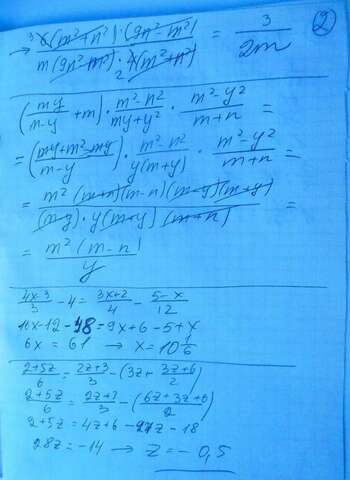 → 3 6(m²+n²)·(9n²-m²) / m(9n²-m²)·2 4(m²+n²) = 3/2m ②
(my/m-y + m)·m²-n²/my+y² · m²-y²/m+n =
= (my+m²-my/m-y)·m²-n²/y(m+y) · m²-y²/m+n =
= m²(m+n)(m-n)(m-y)(m+y)/(m-y)·y(m+y)(m+n) =
= m²(m-n)/y
4x-3/3 - 4 = 3x+2/4 - 5-x/12
16x-12-48=9x+6-5+x
6x = 61 → x=10 1/6
2+5z/6 = 2z+3/3 - (3z+3z+6/2)
2+5z/6 = 2z+3/3 - (6z+3z+6/2)
2+5z = 4z+6-27z-18
28z=-14 → z=-0,5